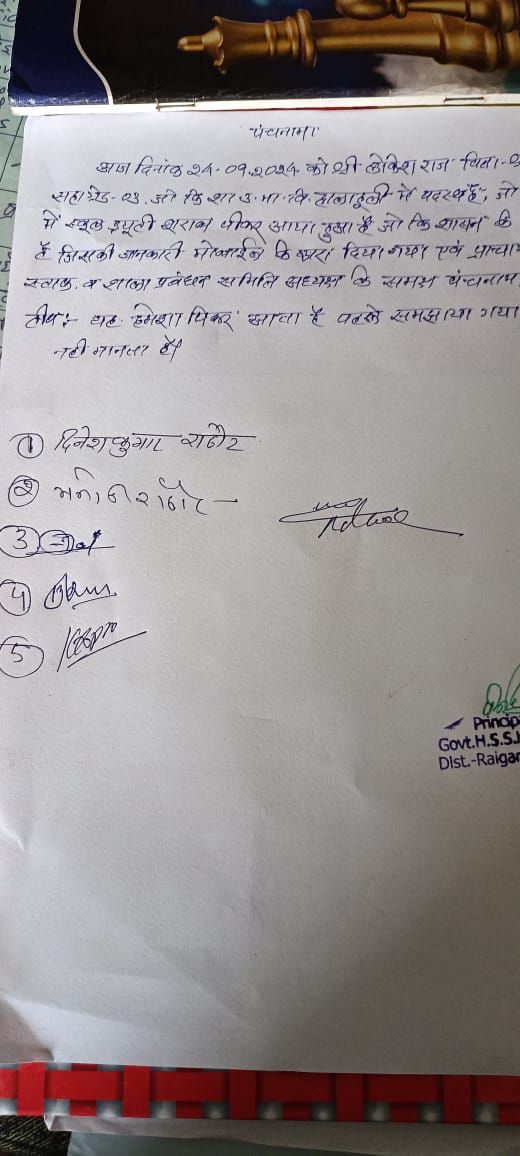 पंचनामा
आज दिनांक 24.09.2024 को श्री लोकेश राज पिता
सहा ग्रेड-03. जो कि शा उ. मा. वि. हालाहुली में पदस्थ है, जो
में स्कूल ड्यूटी शराब पीकर आया हुआ है जो कि शासन के
है जिसकी जानकारी मोबाईल के द्वारा दिया गया एवं प्राचा
स्टाफ. व शाला प्रबंधन समिति अध्यक्ष के समक्ष पंचनाम
टीप:- यह हमेशा पिकर आता है पहले समझाया गया
नही मानता है।
① दिनेश कुमार राठौर
②
③
④
⑤
Princip
Govt.H.S.S.
Dist.-Raigar